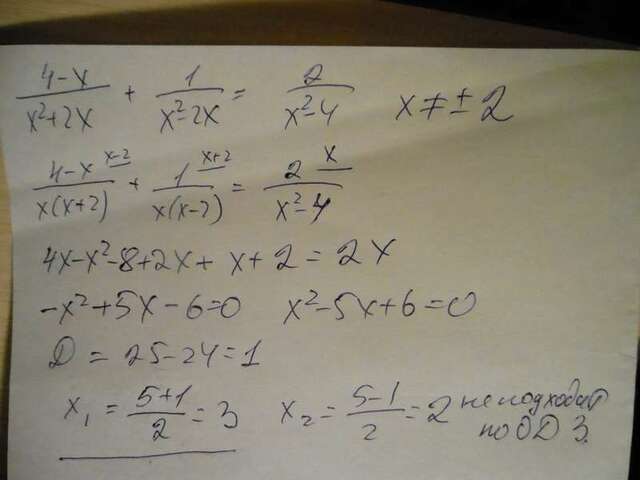 (4-x)/(x²+2x) + 1/(x²-2x) = 2/(x²-4) x ≠ ± 2
(4-x)/(x(x+2)) x-2 + 1/(x(x-2)) x+2 = 2/(x²-4) x
4x-x²-8+2x+x+2=2x
-x²+5x-6=0 x²-5x+6=0
D=25-24=1
x₁=(5+1)/2=3 x₂=(5-1)/2=2 не подходит
по ОДЗ.